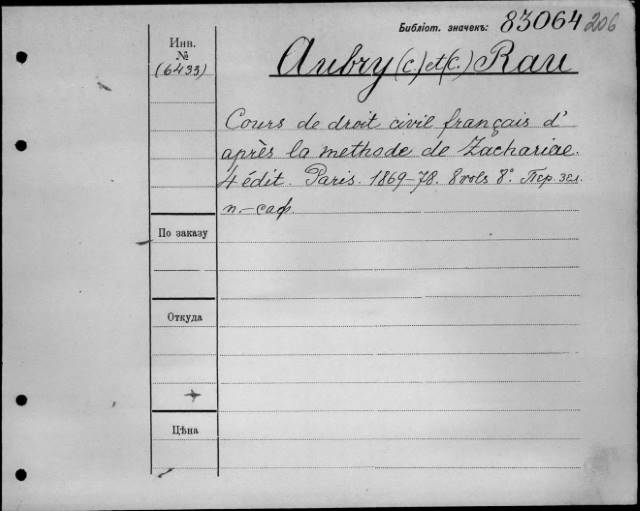 Библіот. значекъ: 83064 206
Инв.
№
(6433)
Aubry (C.) et (C.) Rau
Cours de droit civil français d'
après la methode de Zachariae.
4 édit. Paris. 1869-78. 8 vols 8°. Пер. зел.
п.-саф.
По заказу
Откуда
Цѣна